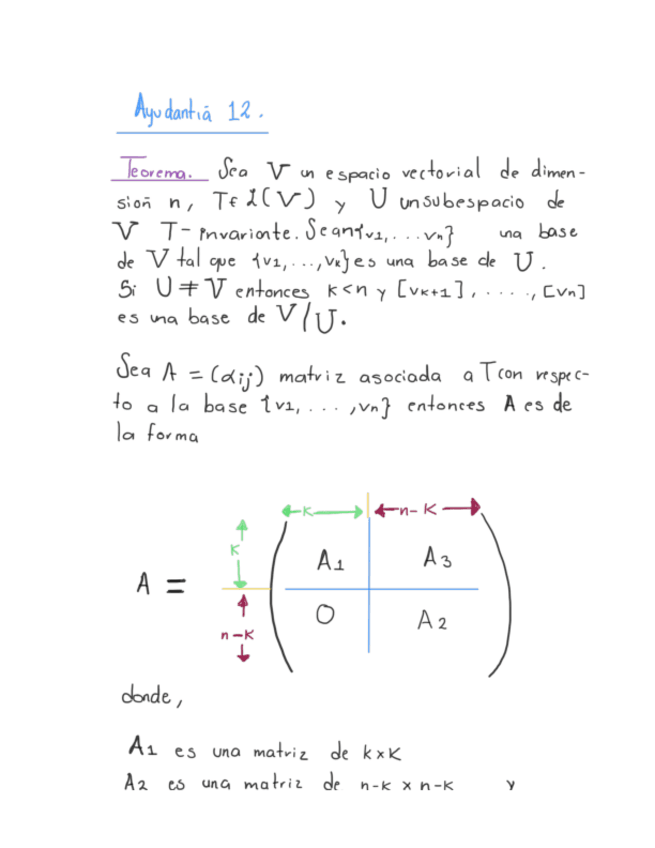 Ayudantiá 12.
Teorema. Sea V un espacio vectorial de dimen-
sioń n, T∈ L(V) y U un subespacio de
V T-invariante. Sean{v1,...vn} una base
de V tal que {v1,...,vk} es una base de U.
Si U≠V entonces k<n y [vk+1],.....,[vn]
es una base de V/U.
Sea A = (αij) matriz asociada a T con respec-
to a la base {v1,...,vn} entonces A es de
la forma
K n-K
K A1 A3
A =
0 A2
n-K
donde,
A1 es una matriz de kxK
A2 es una matriz de n-k x n-k y